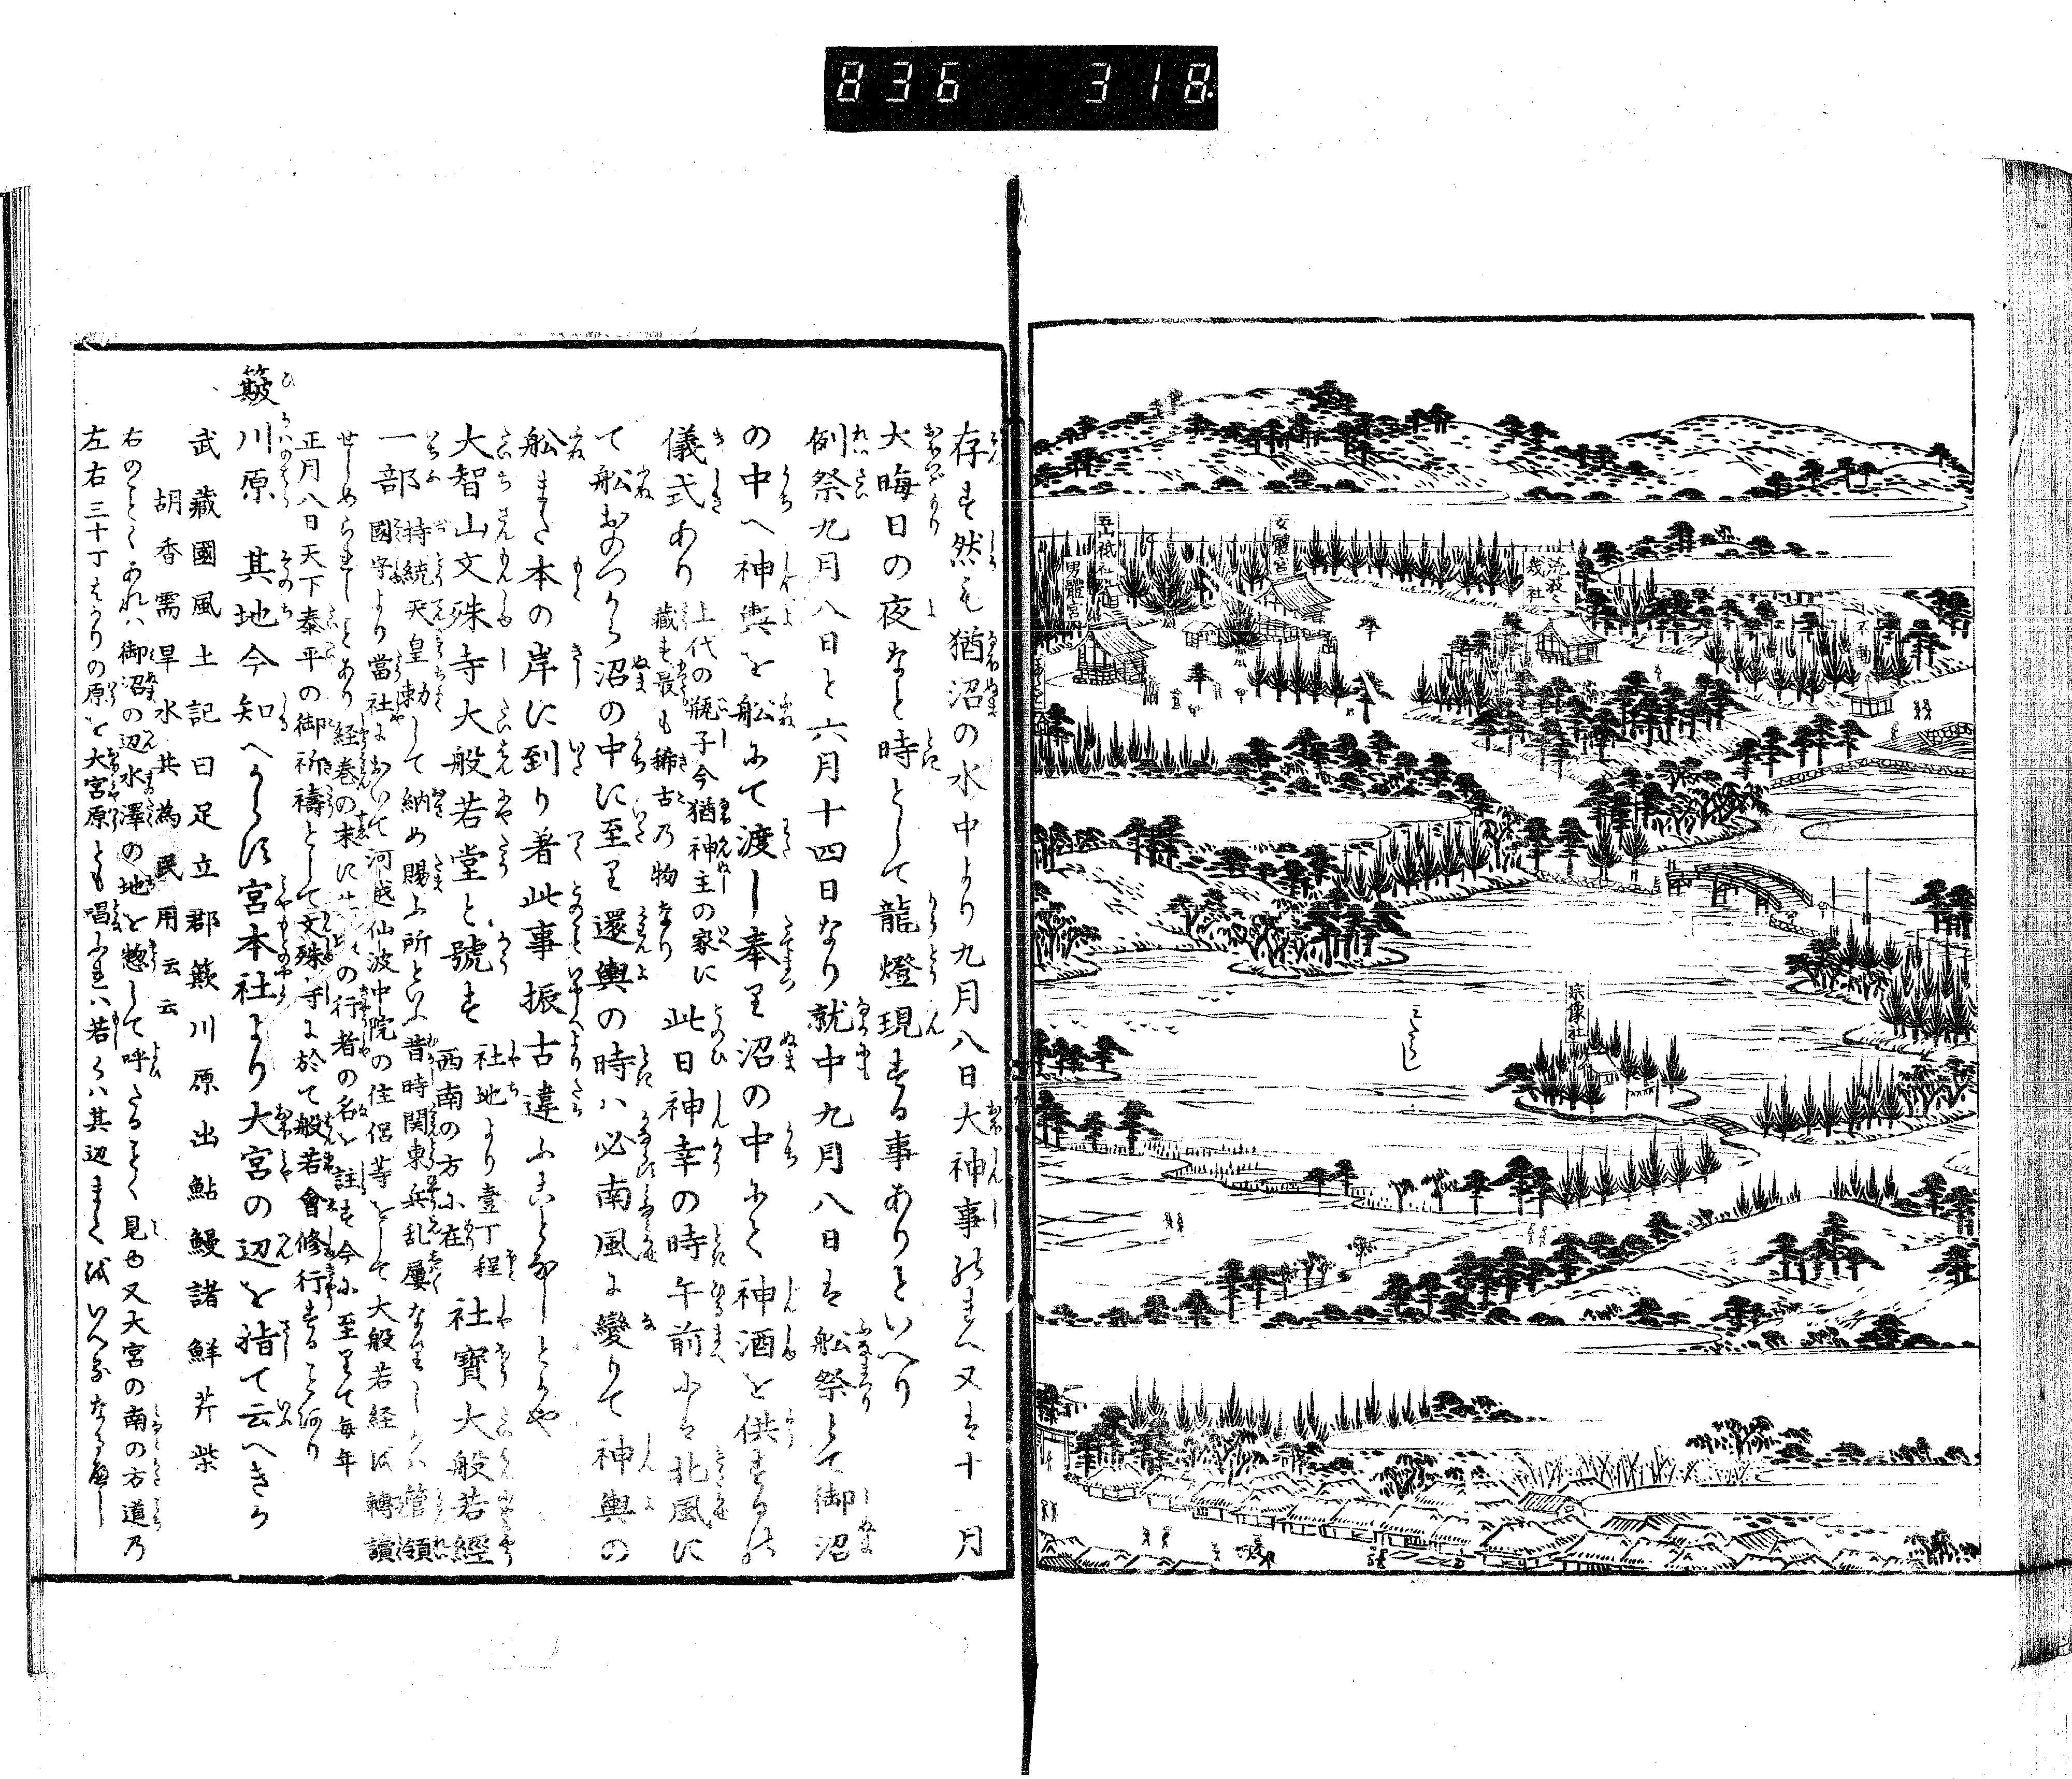 836 318
五山祇社
男體宮
女體宮
宗像社
みたらし
存す然も猶沼の水中より九月八日大神事のまへ又は十一月
大晦日の夜なと時として龍燈現する事ありといへり
例祭九月八日と六月十四日なり就中九月八日は舩祭とて御沼
の中へ神輿を舩にて渡し奉り沼の中にて神酒を供するの
儀式あり
上代の瓶子今猶神主の家に
藏す最も稀古の物なり
此日神幸の時午前には北風に
て舩おのつから沼の中に至り還輿の時ハ必南風に變りて神輿の
舩また本の岸に到り著此事振古違ふことなしとかや
大智山文殊寺大般若堂と號す
社地より壹丁程
西南の方に在
社寳大般若經
一部
持統天皇勅して納め賜ふ所といふ昔時関東兵乱屡なりしかハ管領
國守より當社において河越仙波中院の住侶等をして大般若経を轉讀
せしめられしとあり経巻の末に の行者の名を註す今に至りて毎年
正月八日天下泰平の御祈禱として文殊寺に於て般若會修行することあり
簸川原
其地今知へからす宮本社より大宮の辺を指て云へきか
武藏國風土記曰足立郡簸川原出鮎鰻諸鮮芹柴
胡香需旱水共為民用云云
右のことくあれハ御沼の辺水澤の地を惣して呼たることく見ゆ又大宮の南の方道乃
左右三十丁はかりの原を大宮原とも唱ふれハ若くハ其辺まてを いへるなるへし